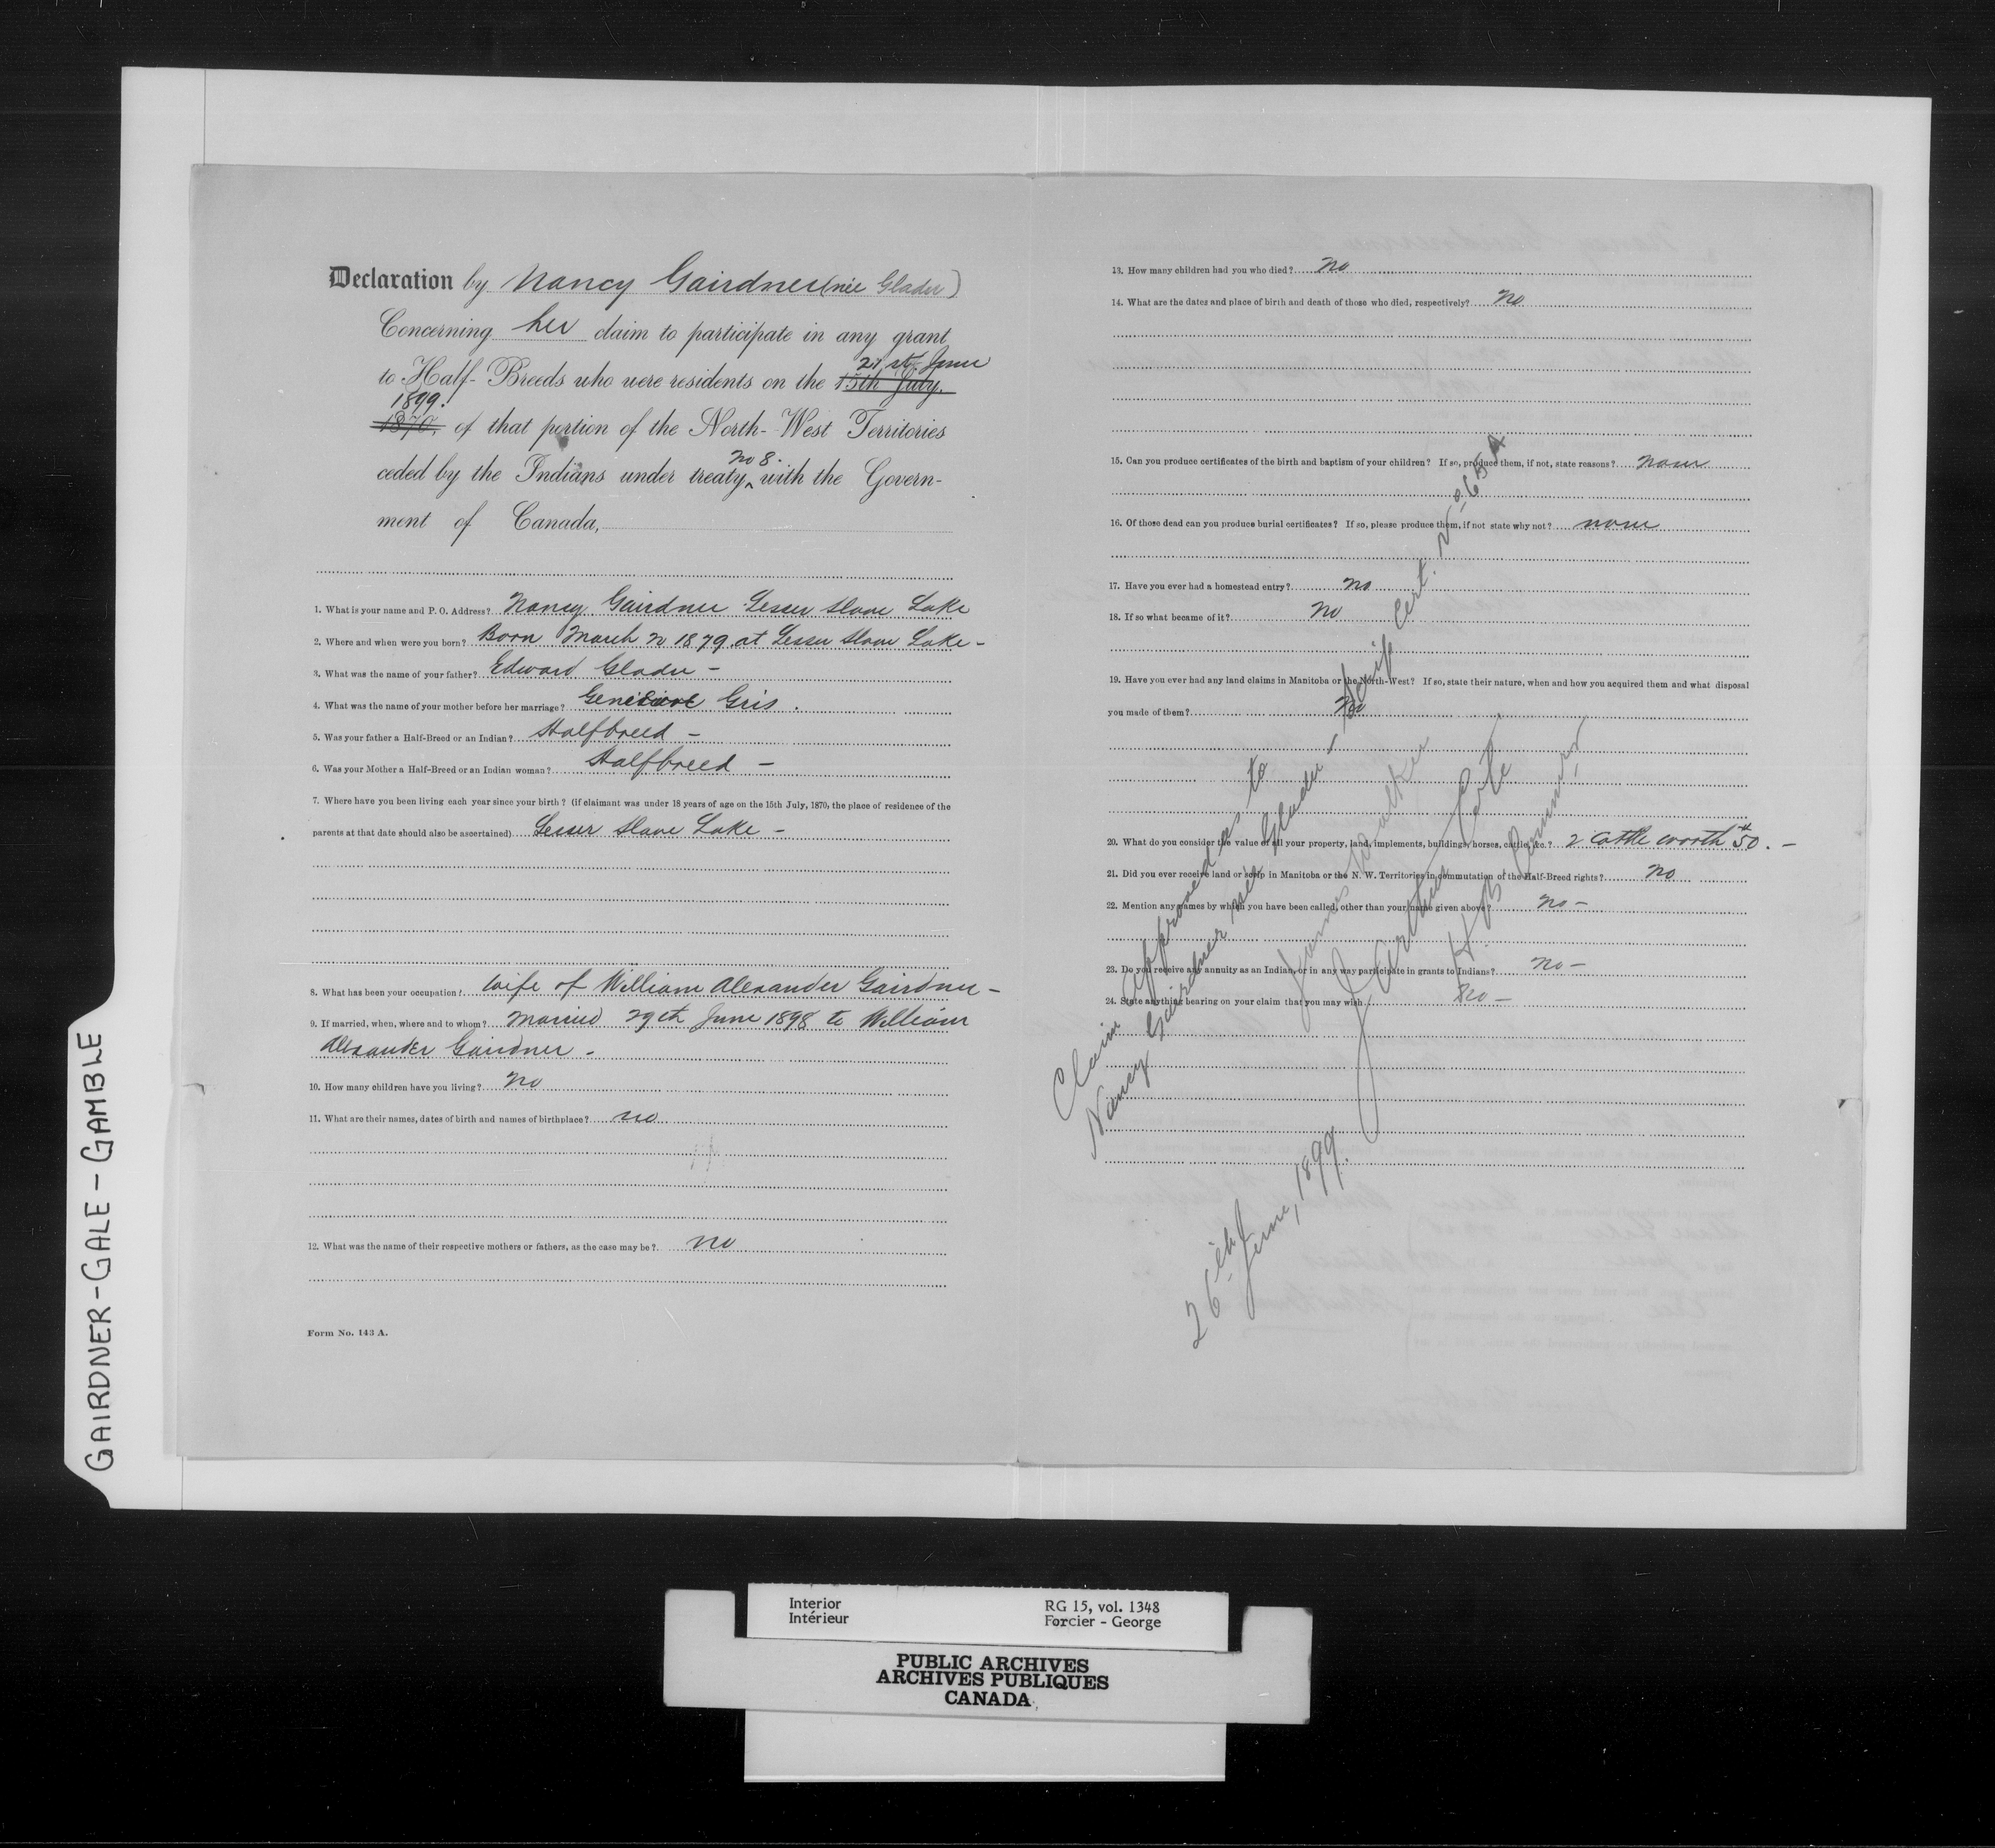 GAIRDNER-GALE-GAMBLE
Declaration by Nancy Gairdner (née Glader)
Concerning her claim to participate in any grant
to Half-Breeds who were residents on the 15th July. 21st June
1870, 1899. of that portion of the North-West Territories
ceded by the Indians under treaty no 8. with the Govern-
ment of Canada,
1. What is your name and P. O. Address? Nancy Gairdner Lesser Slave Lake
2. Where and when were you born? Born March 1879 at Lesser Slave Lake -
3. What was the name of your father? Edward Glader -
4. What was the name of your mother before her marriage? Gris.
5. Was your father a Half-Breed or an Indian? Halfbreed -
6. Was your Mother a Half-Breed or an Indian woman? Halfbreed -
7. Where have you been living each year since your birth? (if claimant was under 18 years of age on the 15th July, 1870, the place of residence of the
parents at that date should also be ascertained) Lesser Slave Lake -
8. What has been your occupation? Wife of William Alexander Gairdner -
9. If married, when, where and to whom? Married 29th June 1898 to William
Alexander Gairdner -
10. How many children have you living? no
11. What are their names, dates of birth and names of birthplace? no
12. What was the name of their respective mothers or fathers, as the case may be? no
Form No. 143 A.
13. How many children had you who died? no
14. What are the dates and place of birth and death of those who died, respectively? no
15. Can you produce certificates of the birth and baptism of your children? If so, produce them, if not, state reasons? none
16. Of those dead can you produce burial certificates? If so, please produce them, if not state why not? none
17. Have you ever had a homestead entry? no
18. If so what became of it? no
19. Have you ever had any land claims in Manitoba or the North-West? If so, state their nature, when and how you acquired them and what disposal
you made of them? no
20. What do you consider the value of all your property, land, implements, buildings, horses, cattle, &c.? 2 cattle worth $50. -
21. Did you ever receive land or scrip in Manitoba or the N. W. Territories in commutation of the Half-Breed rights? no
22. Mention any names by which you have been called, other than your name given above? no -
23. Do you receive any annuity as an Indian, or in any way participate in grants to Indians? no -
24. State anything bearing on your claim that you may wish. no -
Claim approved as to
Nancy Gairdner née Glader - Scrip Cert. No 65 A
James Walker
J. Arthur Coté
H. B. Commrs
26th June, 1899.
Interior
Intérieur
RG 15, vol. 1348
Forcier - George
PUBLIC ARCHIVES
ARCHIVES PUBLIQUES
CANADA